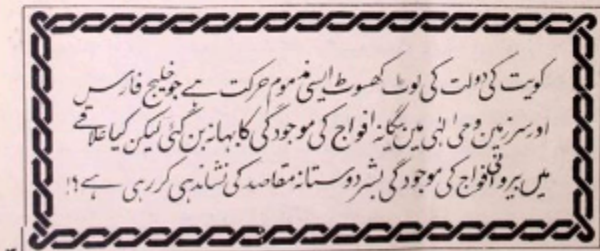 کویت کی دولت کی لوٹ کھسوٹ ایسی مذموم حرکت ہے جو خلیج فارس
اور سرزمین وحی الٰہی میں بیگانہ افواج کی موجودگی کا بہانہ بن گئی لیکن کیا علاقے
میں بیرونی افواج کی موجودگی بشر دوستانہ مقاصد کی نشاندہی کر رہی ہے ؟!